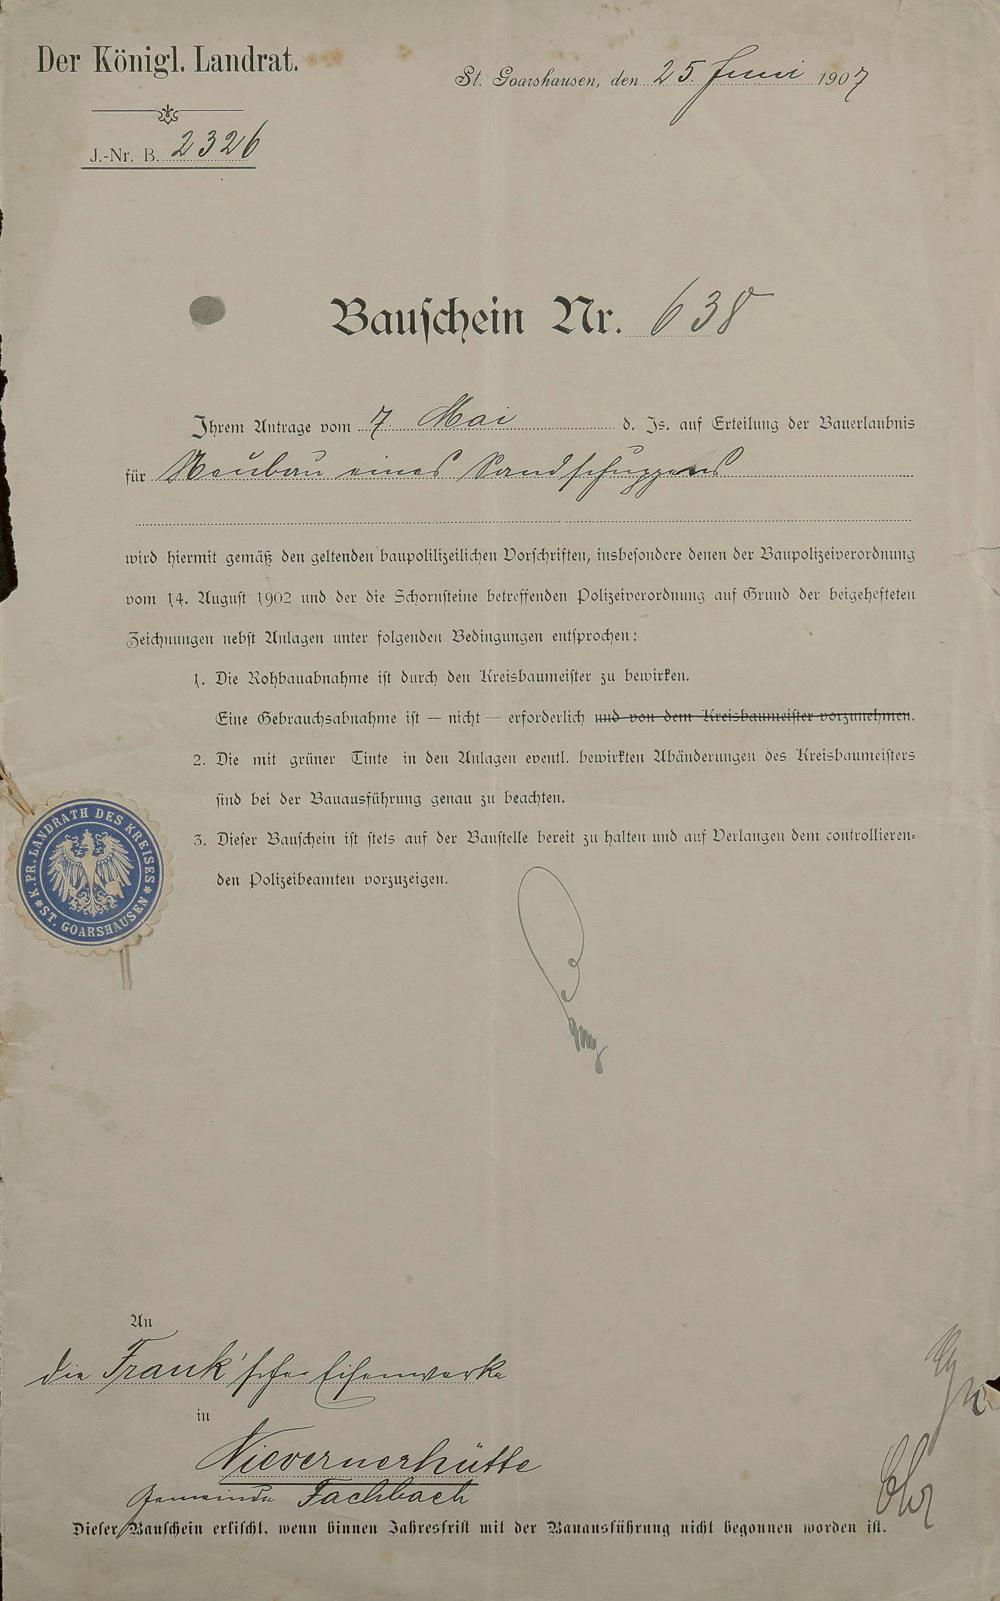 Der Königl. Landrat.
St. Goarshausen, den 25. Juni 1907
J.-Nr. B. 2326
Bauschein Nr. 638
Ihrem Antrage vom 7. Mai d. Js. auf Erteilung der Bauerlaubnis
für Neubau eines Sandschuppens
wird hiermit gemäß den geltenden baupolilizeilichen Vorschriften, insbesondere denen der Baupolizeiverordnung
vom 14. August 1902 und der die Schornsteine betreffenden Polizeiverordnung auf Grund der beigehefteten
Zeichnungen nebst Anlagen unter folgenden Bedingungen entsprochen:
1. Die Rohbauabnahme ist durch den Kreisbaumeister zu bewirken.
Eine Gebrauchsabnahme ist — nicht — erforderlich und von dem Kreisbaumeister vorzunehmen.
2. Die mit grüner Tinte in den Anlagen eventl. bewirkten Abänderungen des Kreisbaumeisters
sind bei der Bauausführung genau zu beachten.
3. Dieser Bauschein ist stets auf der Baustelle bereit zu halten und auf Verlangen dem controllieren-
den Polizeibeamten vorzuzeigen.
K. PR. LANDRATH DES KREISES
ST. GOARSHAUSEN
An
die Frank'schen Eisenwerke
in
Nievernerhütte
Gemeinde Fachbach
Dieser Bauschein erlischt, wenn binnen Jahresfrist mit der Bauausführung nicht begonnen worden ist.